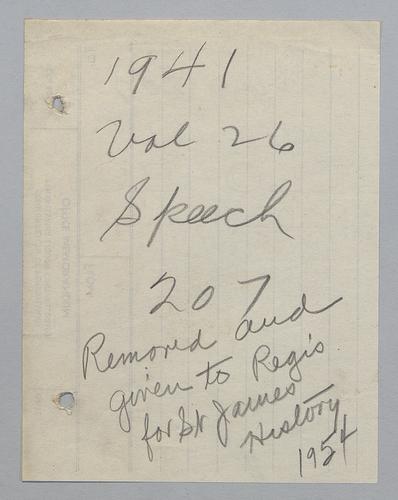 1941
Vol 26
Speech
207
Removed and
given to Regis
for St James
History
1954
OFFICE MEMORANDUM
FROM